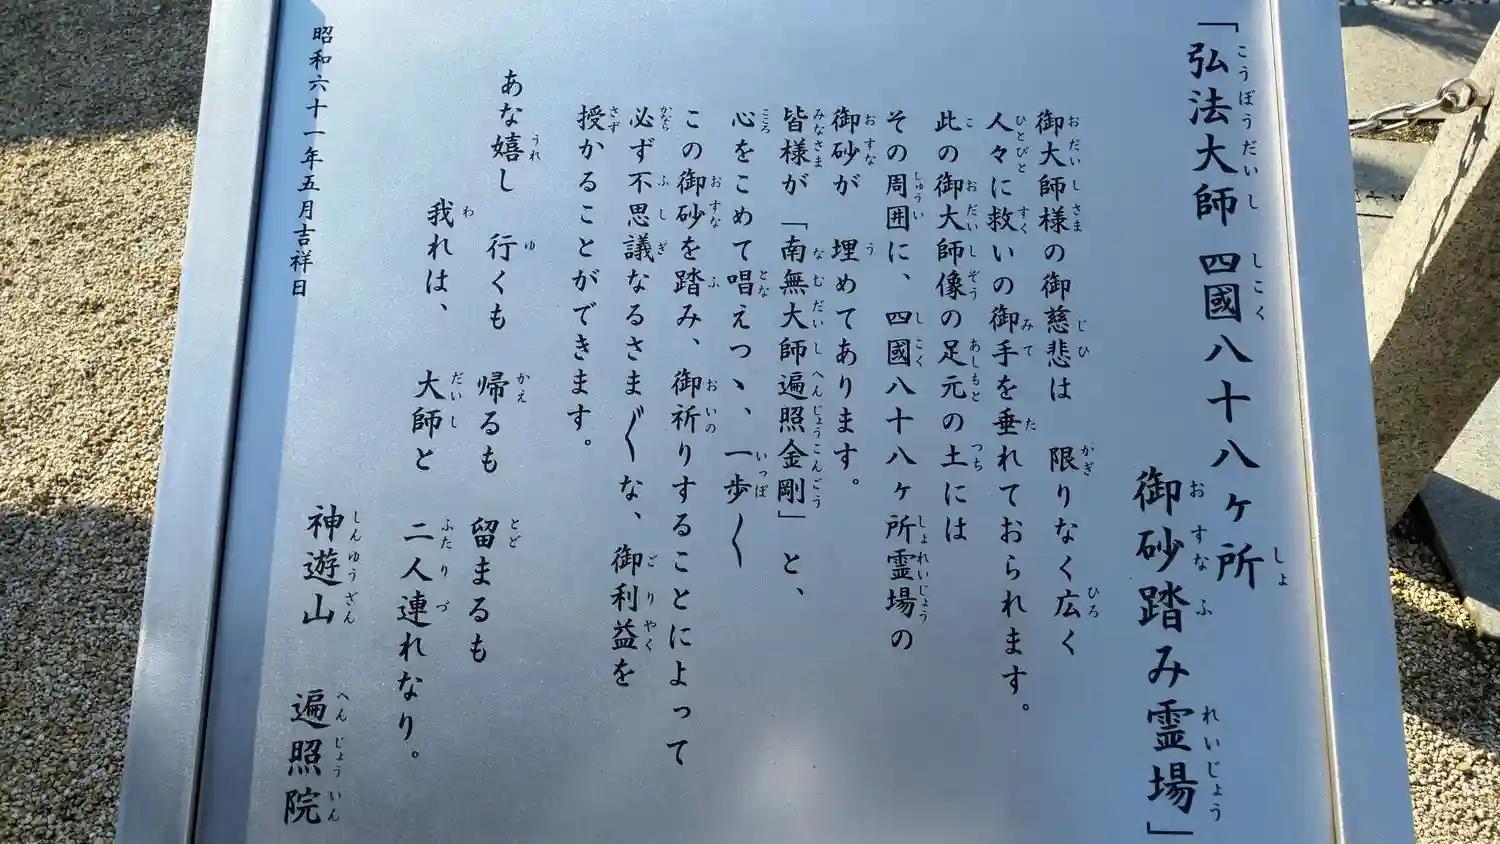 「弘法大師 四國八十八ヶ所
御砂踏み霊場」
御大師様の御慈悲は 限りなく広く
人々に救いの御手を垂れておられます。
此の御大師像の足元の土には
その周囲に、四國八十八ヶ所霊場の
御砂が 埋めてあります。
皆様が「南無大師遍照金剛」と、
心をこめて唱えつヽ、一歩〱
この御砂を踏み、御祈りすることによって
必ず不思議なるさま〲な、御利益を
授かることができます。
あな嬉し 行くも 帰るも 留まるも
我れは、 大師と 二人連れなり。
昭和六十一年五月吉祥日
神遊山 遍照院